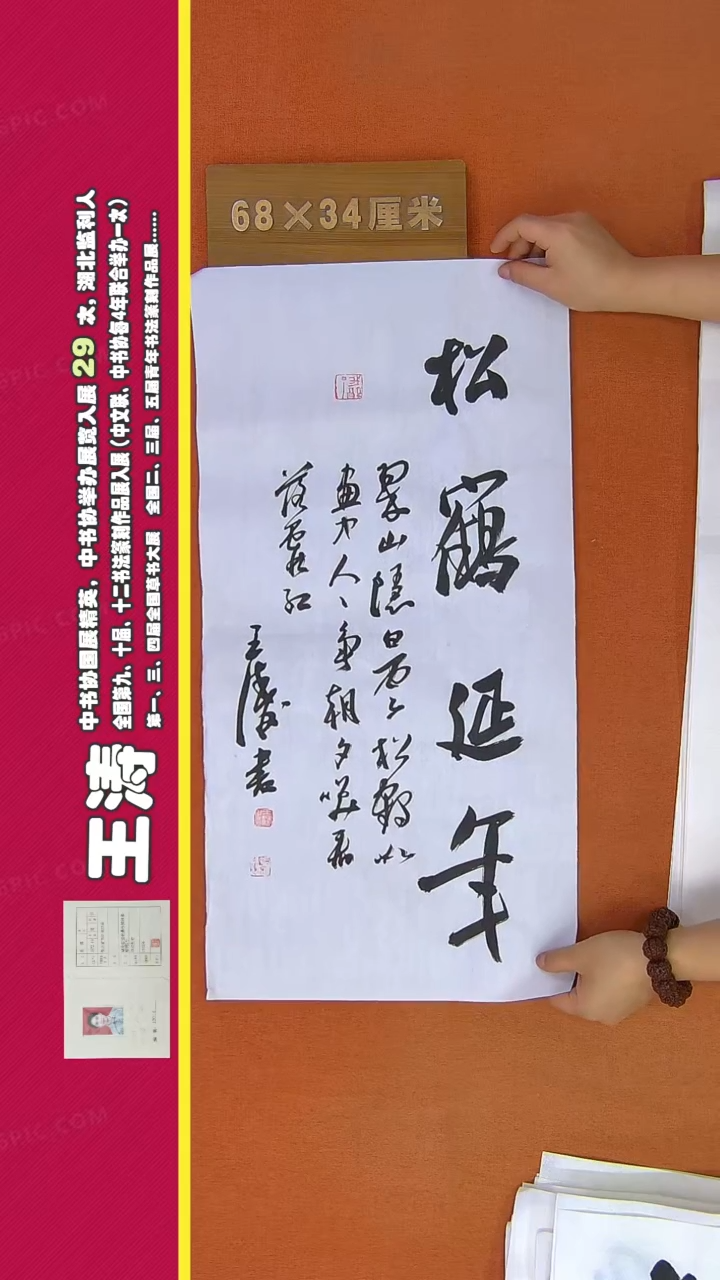 中书协国展精英，中书协举办展览入展29次，湖北监利人
全国第九、十届、十二书法篆刻作品展入展（中文联、中书协每4年联合举办一次）
第一、三、四届全国草书大展 全国二、三届、五届青年书法篆刻作品展……
王涛
68×34厘米
松鹤延年
翠山隐日西 松鹤如
画中人人争朝夕唤君
落霞红
王涛书